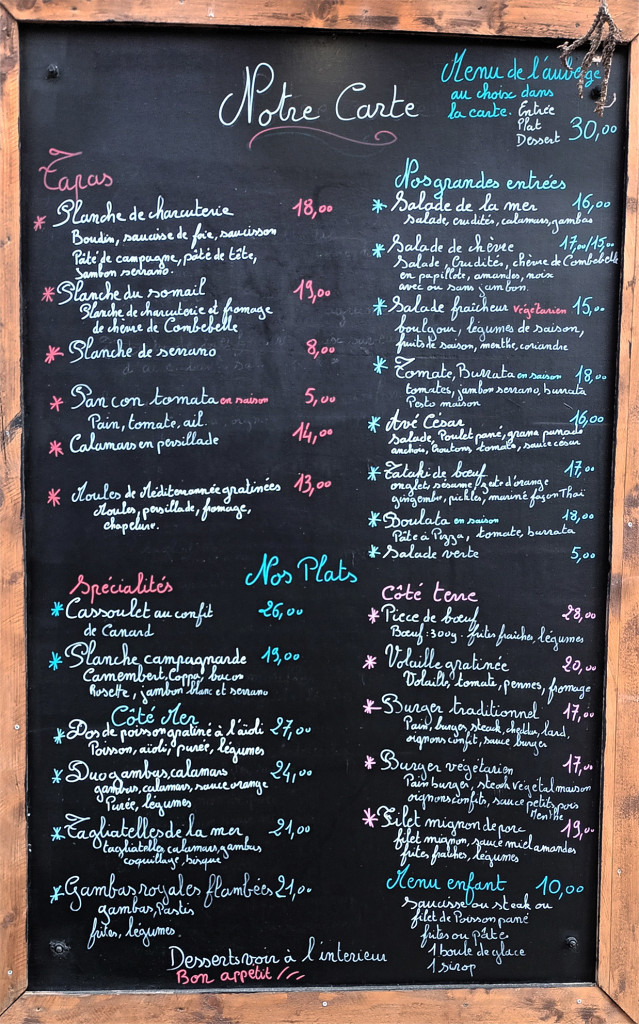 Notre Carte
Menu de l'auberge
au choix dans
la carte. Entrée
Plat
Dessert 30,00
Tapas
Planche de charcuterie 18,00
Boudin, saucisse de foie, saucisson
Pâté de campagne, pâté de tête,
Jambon serrano.
Planche du somail 19,00
Planche de charcuterie et fromage
de chèvre de Combebelle
Planche de serrano 8,00
Pan con tomata en saison 5,00
Pain, tomate, ail.
Calamars en persillade 14,00
Moules de Méditerrannée gratinées 13,00
Moules, persillade, fromage,
chapelure.
Nos grandes entrées
Salade de la mer 16,00
Salade, crudités, calamars, gambas
Salade de chèvre 17,00/15,00
Salade, Crudités, chèvre de Combebelle
en papillote, amandes, noix
avec ou sans jambon.
Salade fraîcheur végétarien 15,00
boulgour, légumes de saison,
fruits de saison, menthe, coriandre
Tomate, Burrata en saison 18,00
tomates, jambon serrano, burrata
Pesto maison
Avé César 16,00
Salade, Poulet pané, grana panado
anchois, Croutons, tomate, sauce césar
Tataki de bœuf 17,00
onglet, sésame, zeste d'orange
gingembre, pickles, mariné façon Thaï
Boulata en saison 18,00
Pâte à Pizza, tomate, burrata
Salade verte 5,00
Nos Plats
Spécialités
Cassoulet au confit 26,00
de Canard
Planche campagnarde 19,00
Camembert, Coppa, bacon
Rosette, jambon blanc et serrano
Côté Mer
Dos de poisson gratiné à l'aïoli 27,00
Poisson, aïoli, purée, légumes
Duo gambas, calamars 24,00
gambas, calamars, sauce orange
Purée, légumes
Tagliatelles de la mer 21,00
tagliatelles calamars, gambas
coquillage, bisque
Gambas royales flambées 21,00
gambas, Pastis
frites, légumes.
Côté terre
Pièce de bœuf 28,00
Bœuf 300g. frites fraîches, légumes
Volaille gratinée 20,00
Volaille, tomate, pennes, fromage
Burger traditionnel 17,00
Pain, burger steak, cheddar, lard,
oignons confit, sauce burger
Burger végétarien 17,00
Pain burger, steak végétal maison
oignons confits, sauce petits pois
Menthe
Filet mignon de porc 19,00
filet mignon, sauce miel amandes
frites fraîches, légumes
Menu enfant 10,00
Saucisse ou steak ou
filet de Poisson pané
frites ou Pâte
1 boule de glace
1 sirop
Desserts voir à l'interieur
Bon appetit